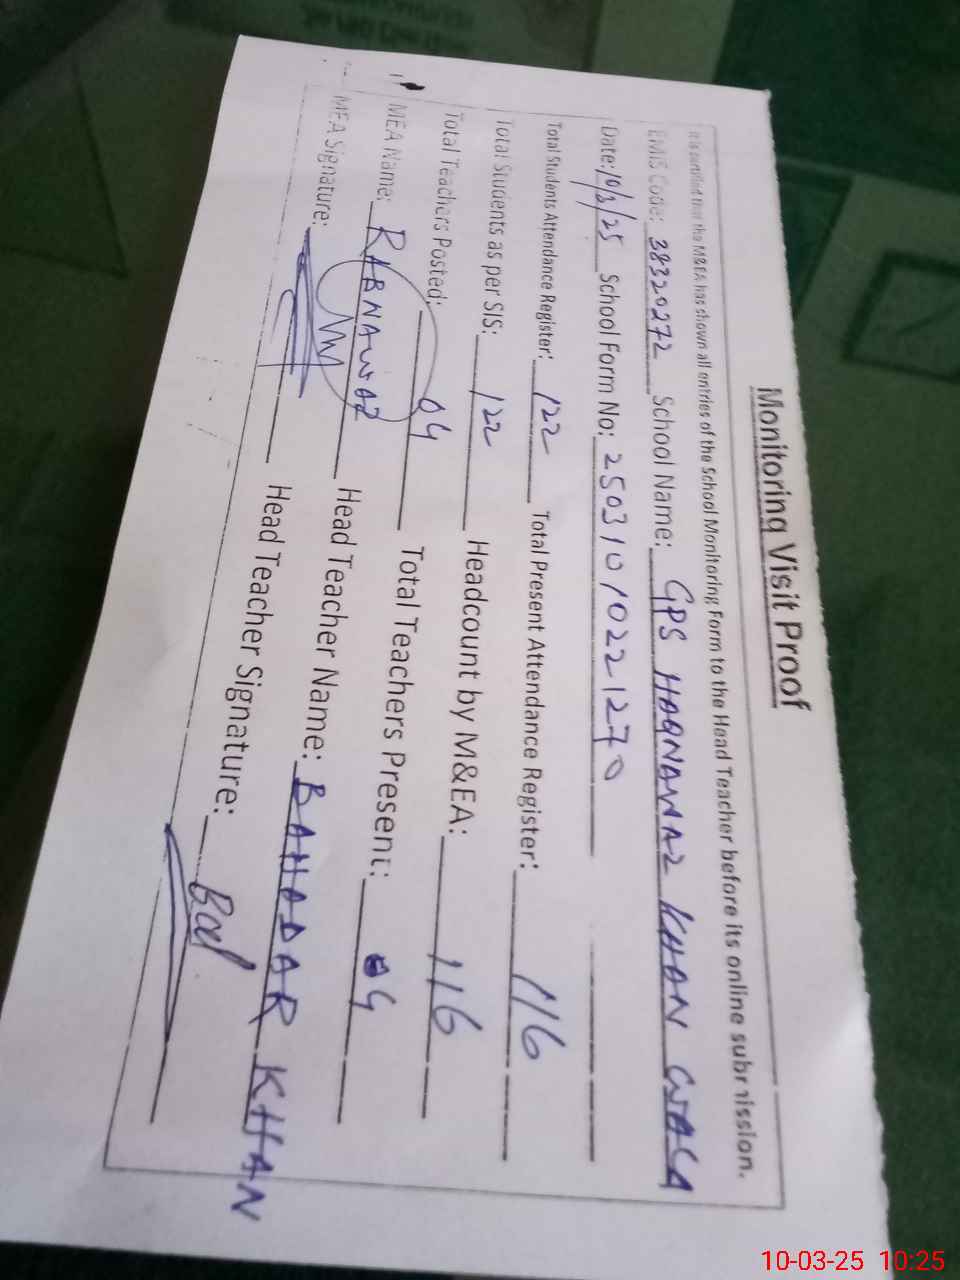 Monitoring Visit Proof
It is certified that the M&EA has shown all entries of the School Monitoring Form to the Head Teacher before its online submission.
EMIS Code: 38320272 School Name: GPS HAQNAWAZ KHAN WALA
Date: 10/3/25 School Form No: 25031010221270
Total Students Attendance Register: 122 Total Present Attendance Register: 116
Total Students as per SIS: 122 Headcount by M&EA: 116
Total Teachers Posted: 04 Total Teachers Present: 04
MEA Name: RABNAWAZ Head Teacher Name: BAHADAR KHAN
MEA Signature: Head Teacher Signature:
10-03-25 10:25